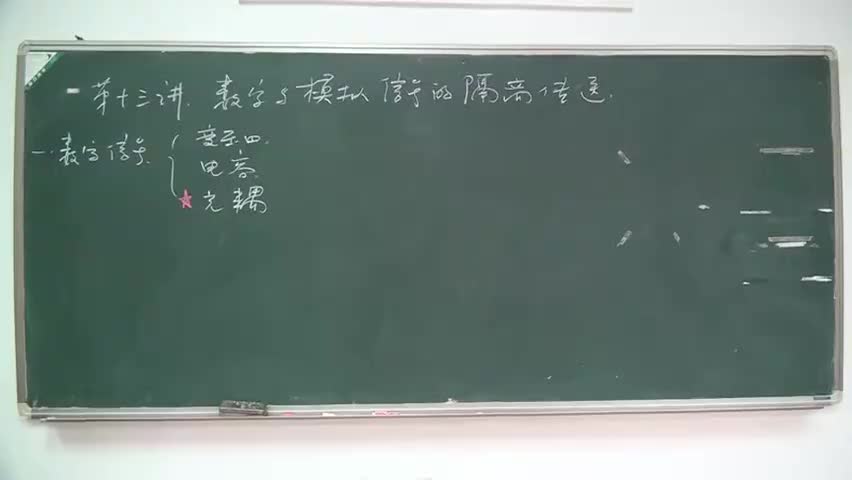 第十三讲. 数字与模拟信号的隔离传送.
一. 数字信号
变压四.
电容
★光耦